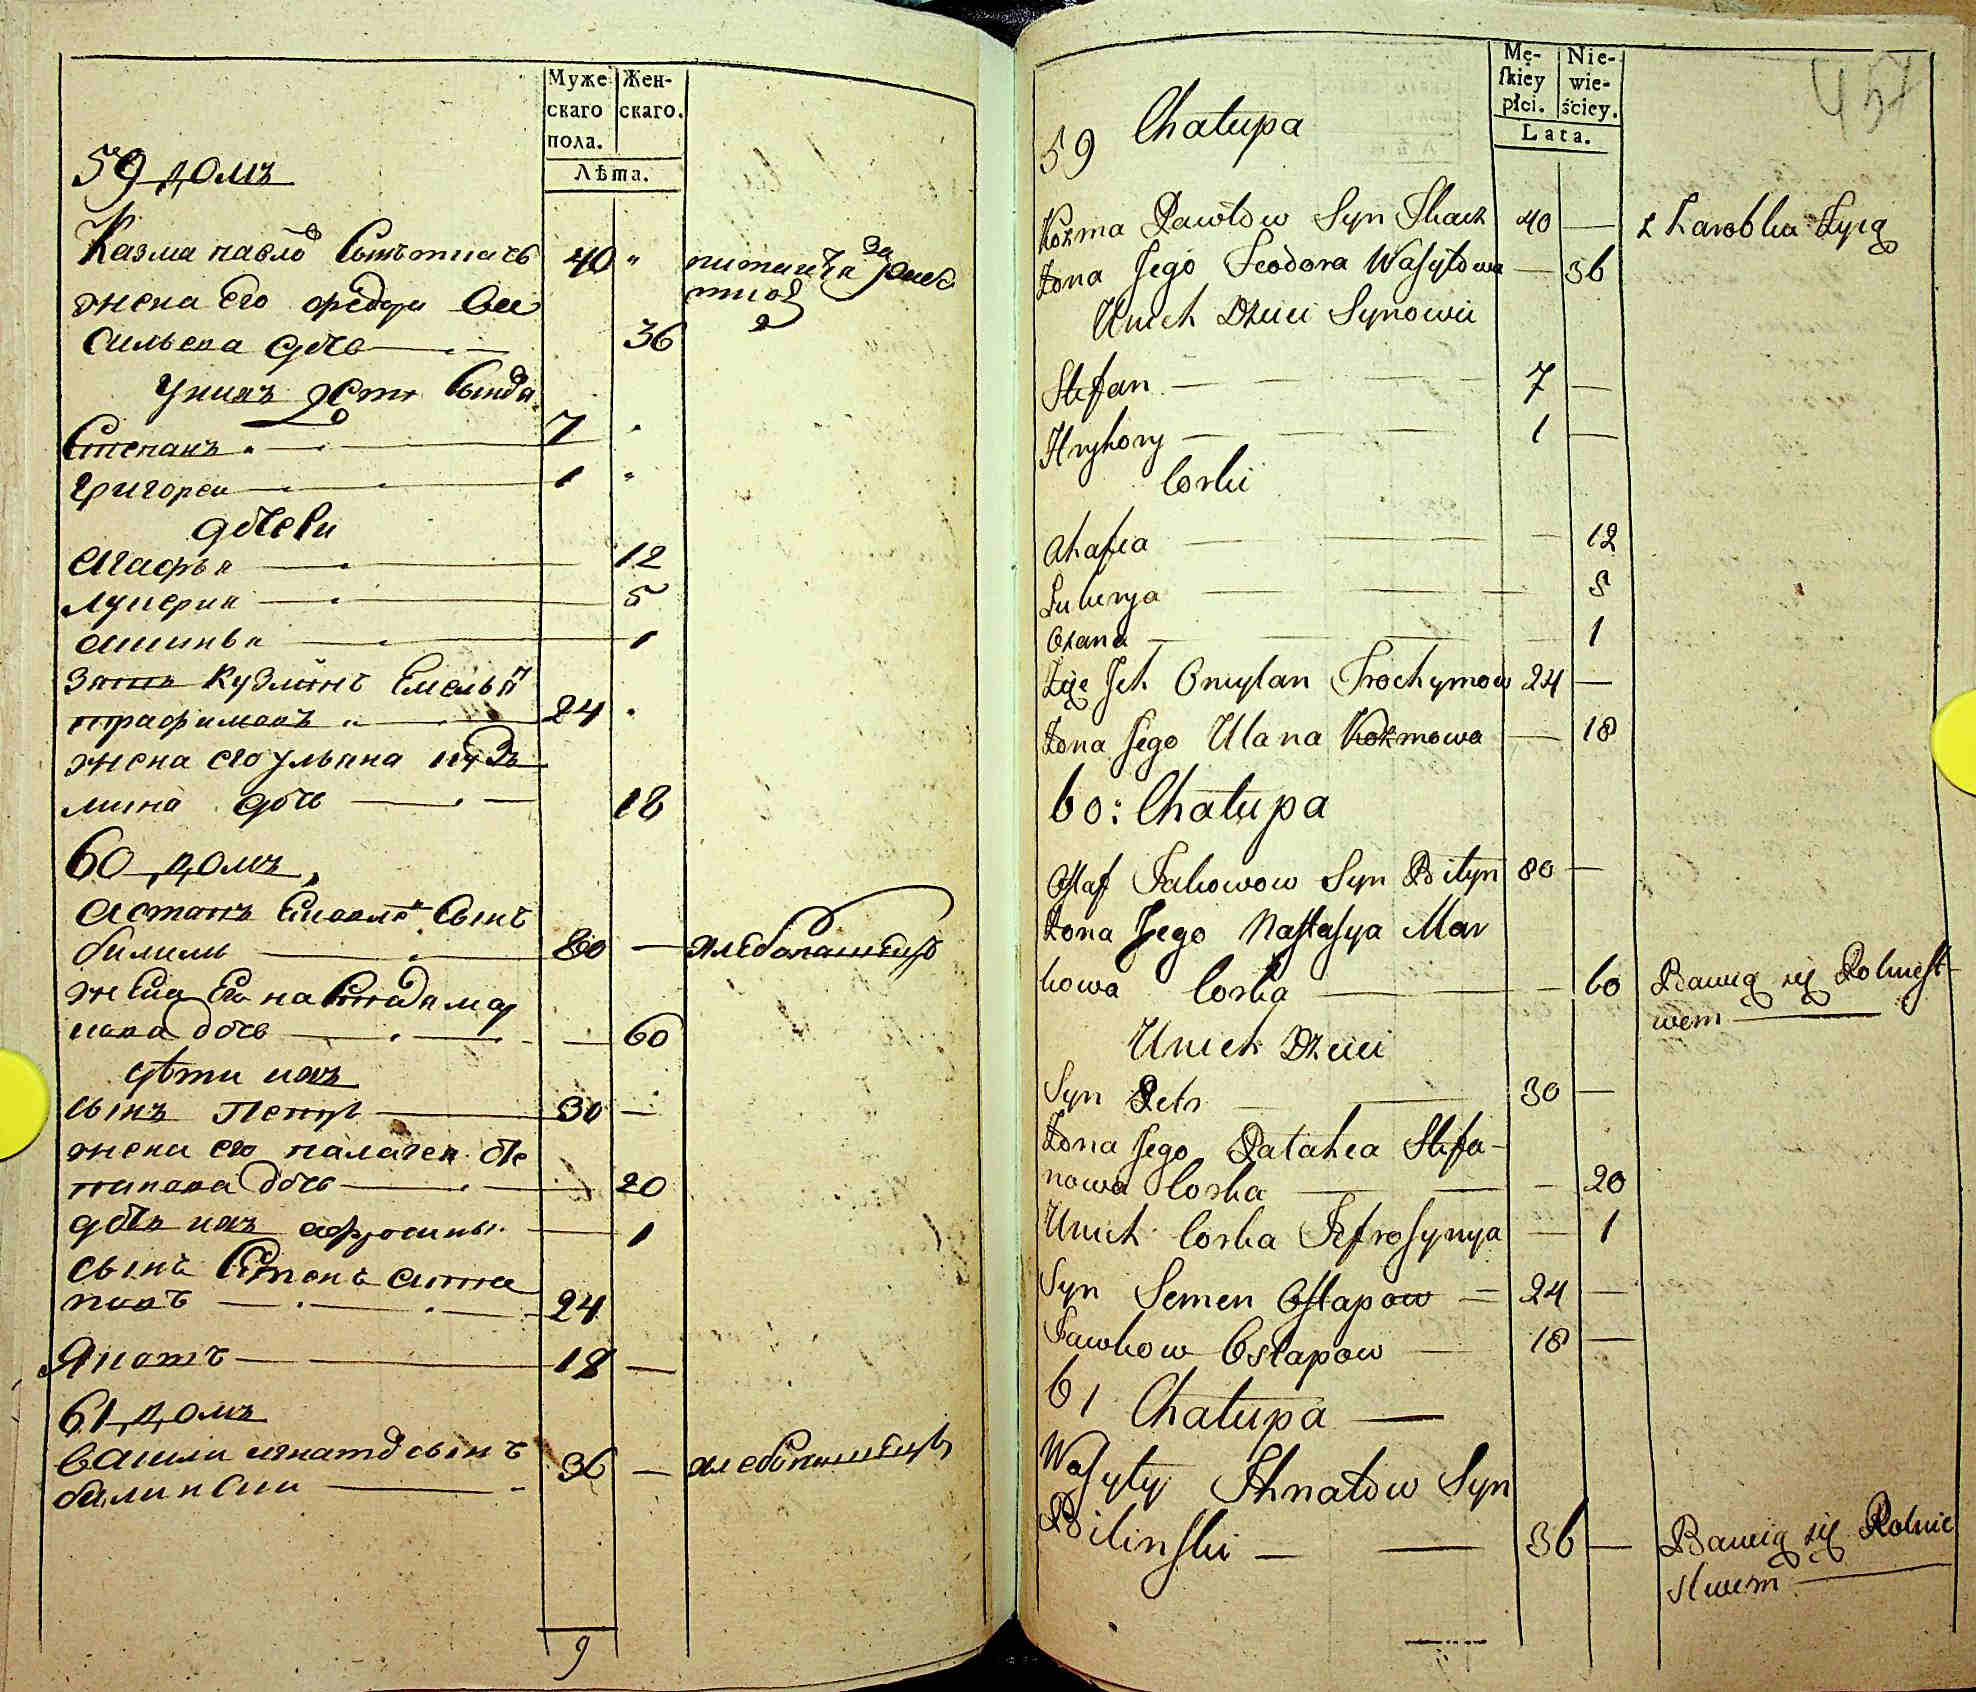 Муже
скаго
пола.
Жен-
скаго.
Лѣта.
59 домъ
Казма павло Сынъ ткачъ 40 "
жена его федора ва
сильева дочь 36
У нихъ дети Сынови
Степанъ 7
григореи 1 "
дочери
агафья 12
лукерия 5
аксинья 1
зять кузминъ Емельян
трафимовъ 24
жена его ульяна куз
мина дочь 18
60 домъ
астапъ Сынъ
билинъ 80 — хлебопашецъ
жена Его настасья мар
кова дочь — 60
дѣти ихъ
сынъ Петръ 30 —
жена его палагея сте
панова дочь 20
дочь ихъ афросинья 1
сынъ Семенъ аста
повъ 24
18 —
61 домъ
васили игнатов сынъ 36 — хлебопашецъ
билински
9
Mę-
ſkiey
płci.
Nie-
wie-
ściey.
Lata.
457
59 Chałupa
Kozma Pawłow Syn Tkacz 40 — z Zarobku Żyią
Żona Jego Feodora Wasyłowa — 36
U nich Dzieci Synowie
Stefan — 7 —
Hryhory — 1 —
Corki
Ahafia — 12
Lukerya — 5
Oxana — 1
Zięc Ich Omylan Trochymow 24 —
Żona Jego Ulana Kozmowa — 18
60: Chałupa
Ostaf Jakowow Syn Bilyn 80 —
Żona Jego Nastasya Mar
kowa Corka — 60 Bawią się Rolnict-
wem
U nich Dzieci
Syn Petr 30 —
Żona Jego Palahea Stefa-
nowa Corka — 20
U nich Corka Jefrosynya — 1
Syn Semen Ostapow 24 —
Jawkow Ostapow 18 —
61 Chałupa —
Wasyly Ihnatow Syn
Bilinski — 36 — Bawią się Rolnic
stwem